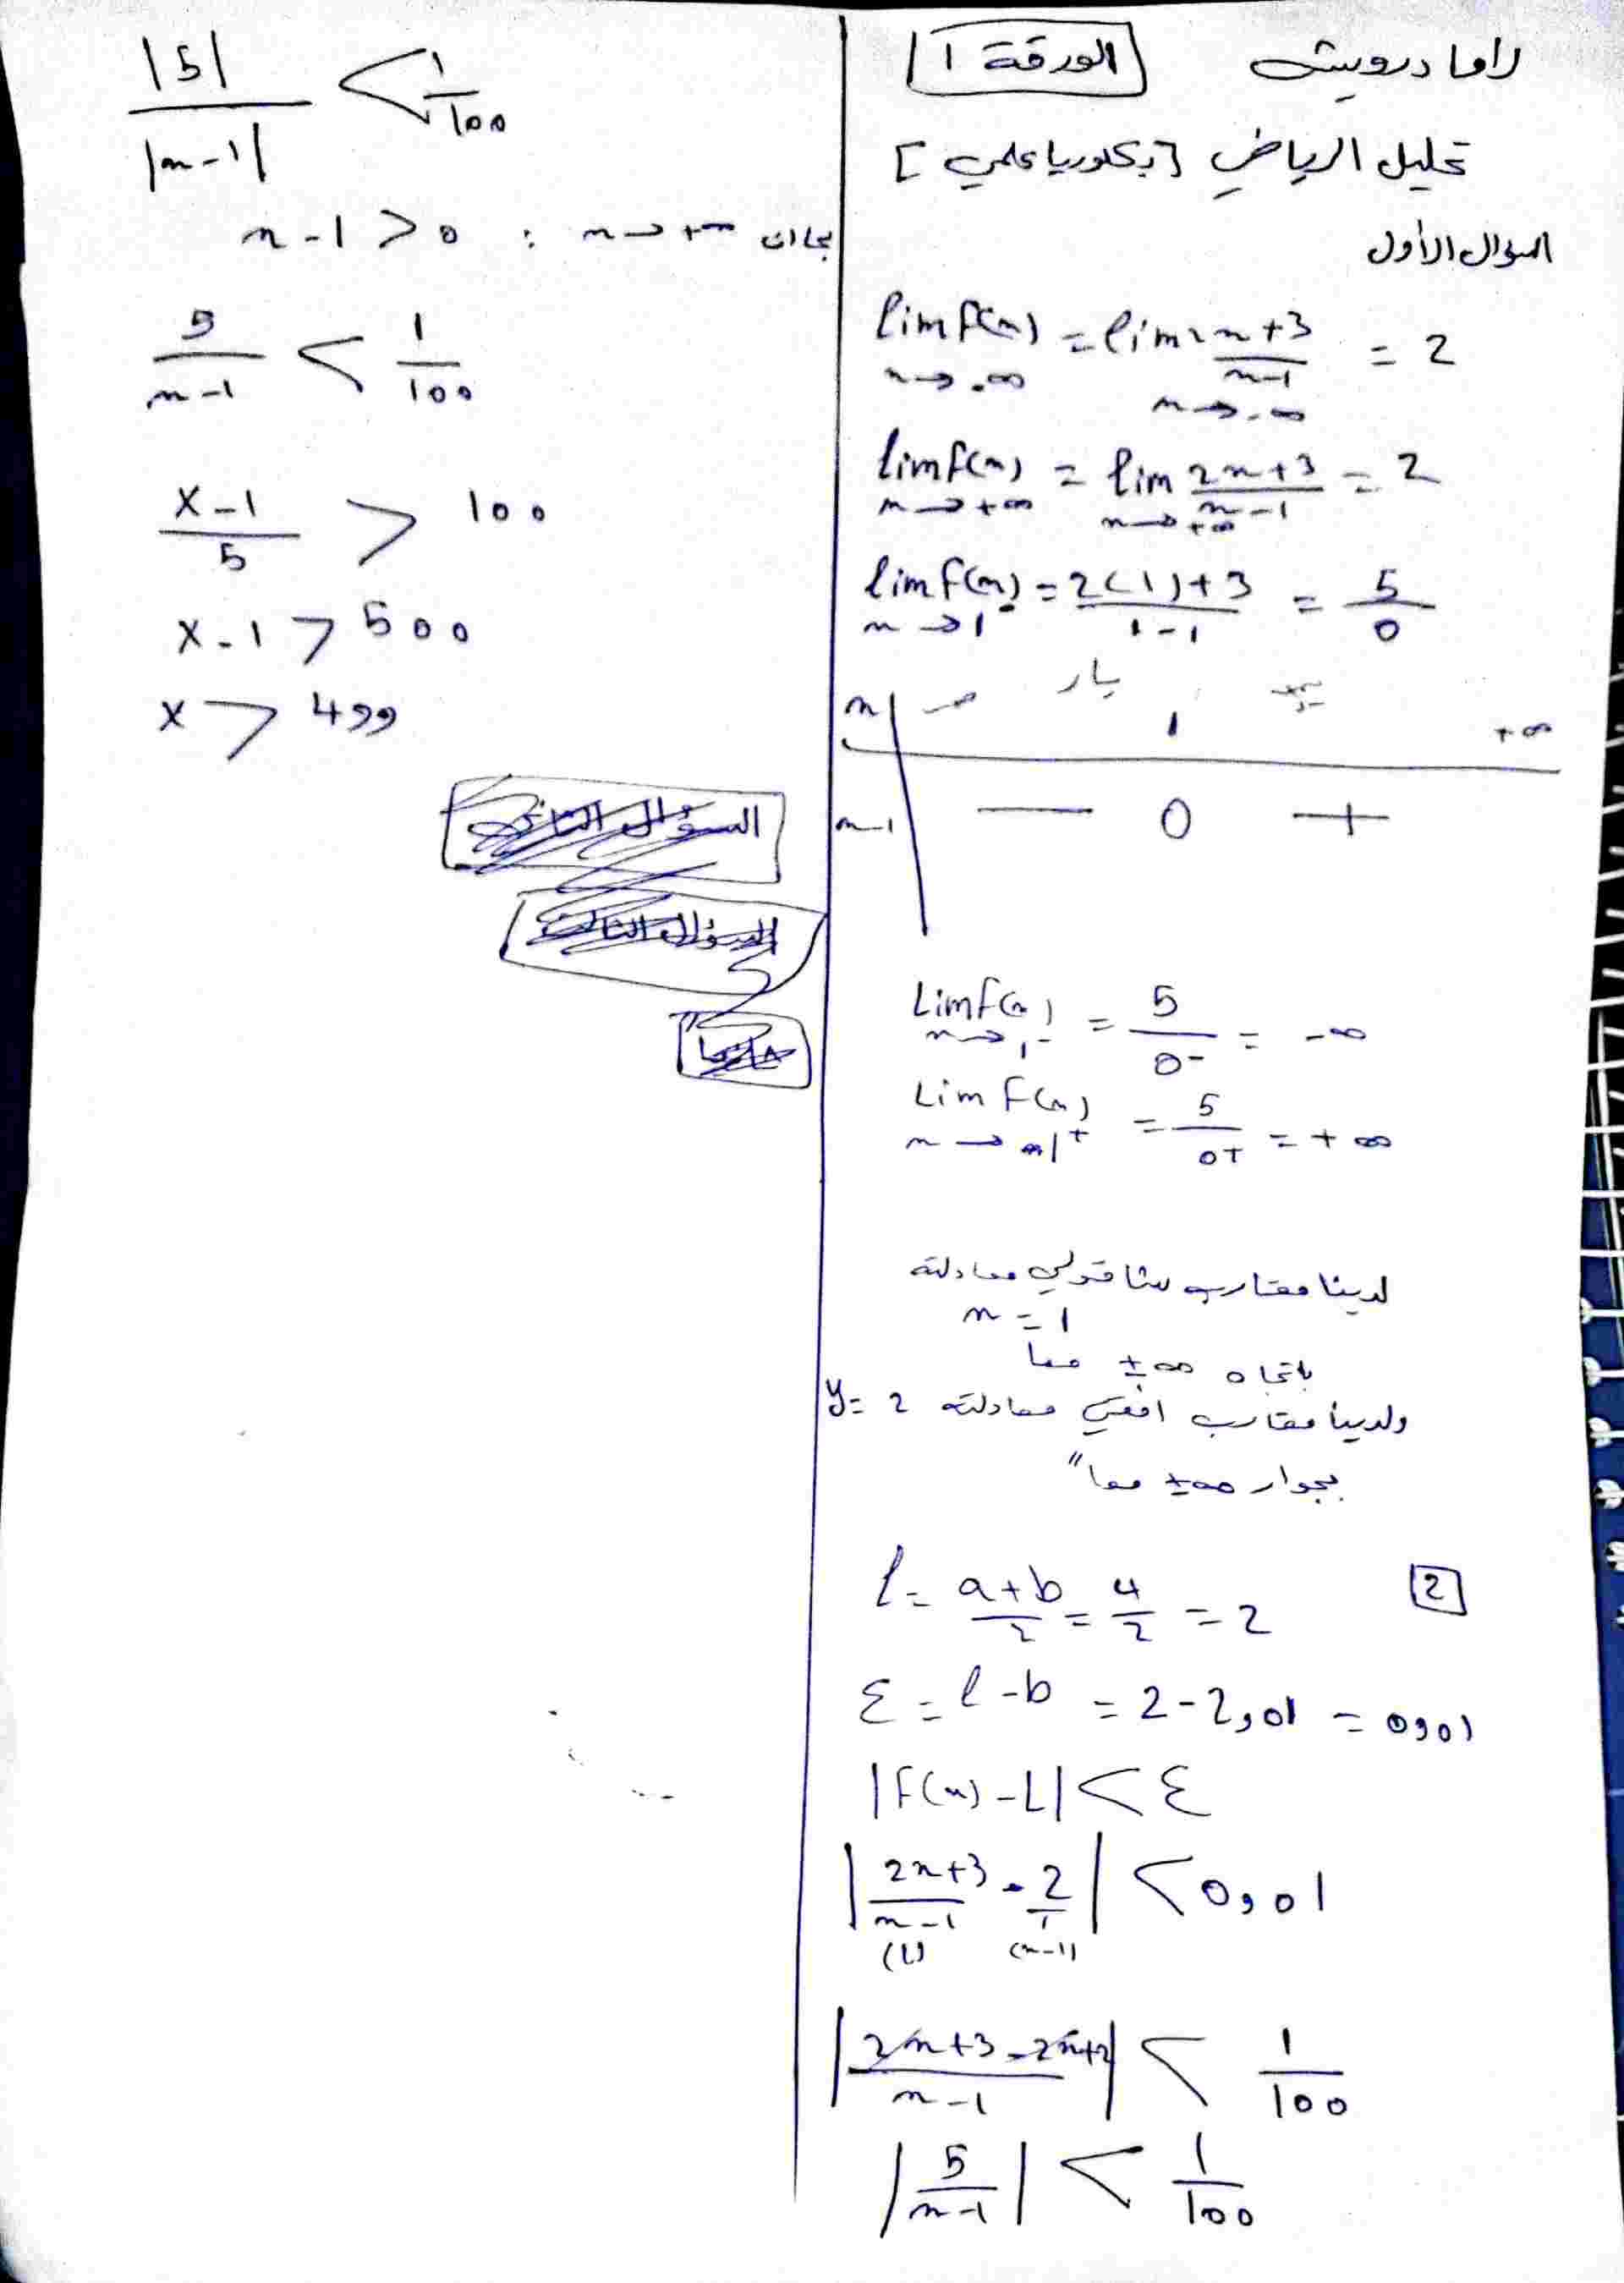 راما درويش الورقة 1
تحليل الرياضي [بكلوريا علمي]
السؤال الأول
lim f(x) = lim 2x+3/x-1 = 2
x→-∞ x→-∞
lim f(x) = lim 2x+3/x-1 = 2
x→+∞ x→+∞
lim f(x) = 2(1)+3/1-1 = 5/0
x→1
x | -∞ يسار 1 يمين +∞
x-1 | - 0 +
Lim f(x) = 5/0- = -∞
x→1-
Lim f(x) = 5/0+ = +∞
x→1+
لدينا مقارب شاقولي معادلته
x = 1
باتجاه ±∞ معا
ولدينا مقارب افقي معادلته y= 2
بجوار ±∞ معا"
2
l = a+b/2 = 4/2 = 2
ε = l-b = 2-2,01 = 0,01
|f(x)-L| < ε
|2x+3/x-1 - 2/1| < 0,01
(1) (x-1)
|2x+3-2x+2/x-1| < 1/100
|5/x-1| < 1/100
|5|/|x-1| < 1/100
بما ان x→+∞ : x-1 > 0
5/x-1 < 1/100
x-1/5 > 100
x-1 > 500
x > 499
السؤال الثاني
السؤال الثالث